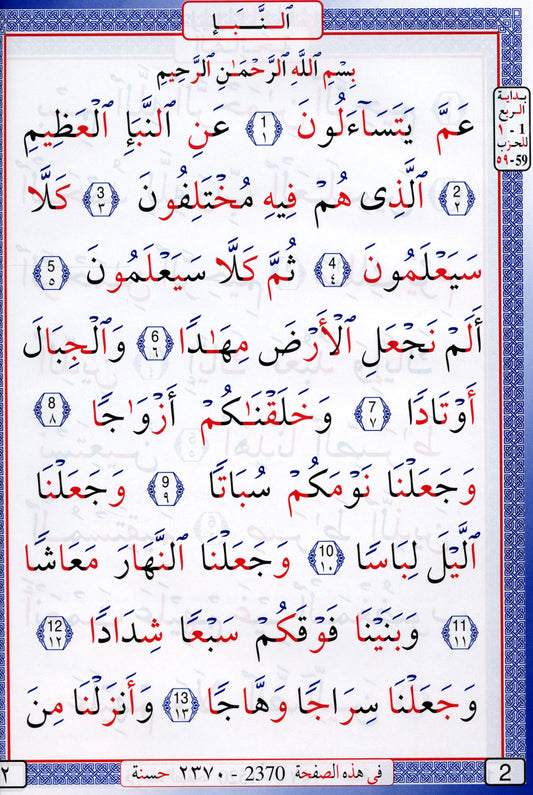 ٱلنَّبَإِ
بِسْمِ ٱللَّهِ ٱلرَّحْمَـٰنِ ٱلرَّحِيمِ
بداية
الربع
1 - ١
للحزب
59-٥٩
عَمَّ يَتَسَآءَلُونَ 1 ١ عَنِ ٱلنَّبَإِ ٱلْعَظِيمِ
2 ٢ ٱلَّذِى هُمْ فِيهِ مُخْتَلِفُونَ 3 ٣ كَلَّا
سَيَعْلَمُونَ 4 ٤ ثُمَّ كَلَّا سَيَعْلَمُونَ 5 ٥
أَلَمْ نَجْعَلِ ٱلْأَرْضَ مِهَـٰدًا 6 ٦ وَٱلْجِبَالَ
أَوْتَادًا 7 ٧ وَخَلَقْنَـٰكُمْ أَزْوَٰجًا 8 ٨
وَجَعَلْنَا نَوْمَكُمْ سُبَاتًا 9 ٩ وَجَعَلْنَا
ٱلَّيْلَ لِبَاسًا 10 ١٠ وَجَعَلْنَا ٱلنَّهَارَ مَعَاشًا
11 ١١ وَبَنَيْنَا فَوْقَكُمْ سَبْعًا شِدَادًا 12 ١٢
وَجَعَلْنَا سِرَاجًا وَهَّاجًا 13 ١٣ وَأَنزَلْنَا مِنَ
2 في هذه الصفحة 2370 - ٢٣٧٠ حسنة ٢